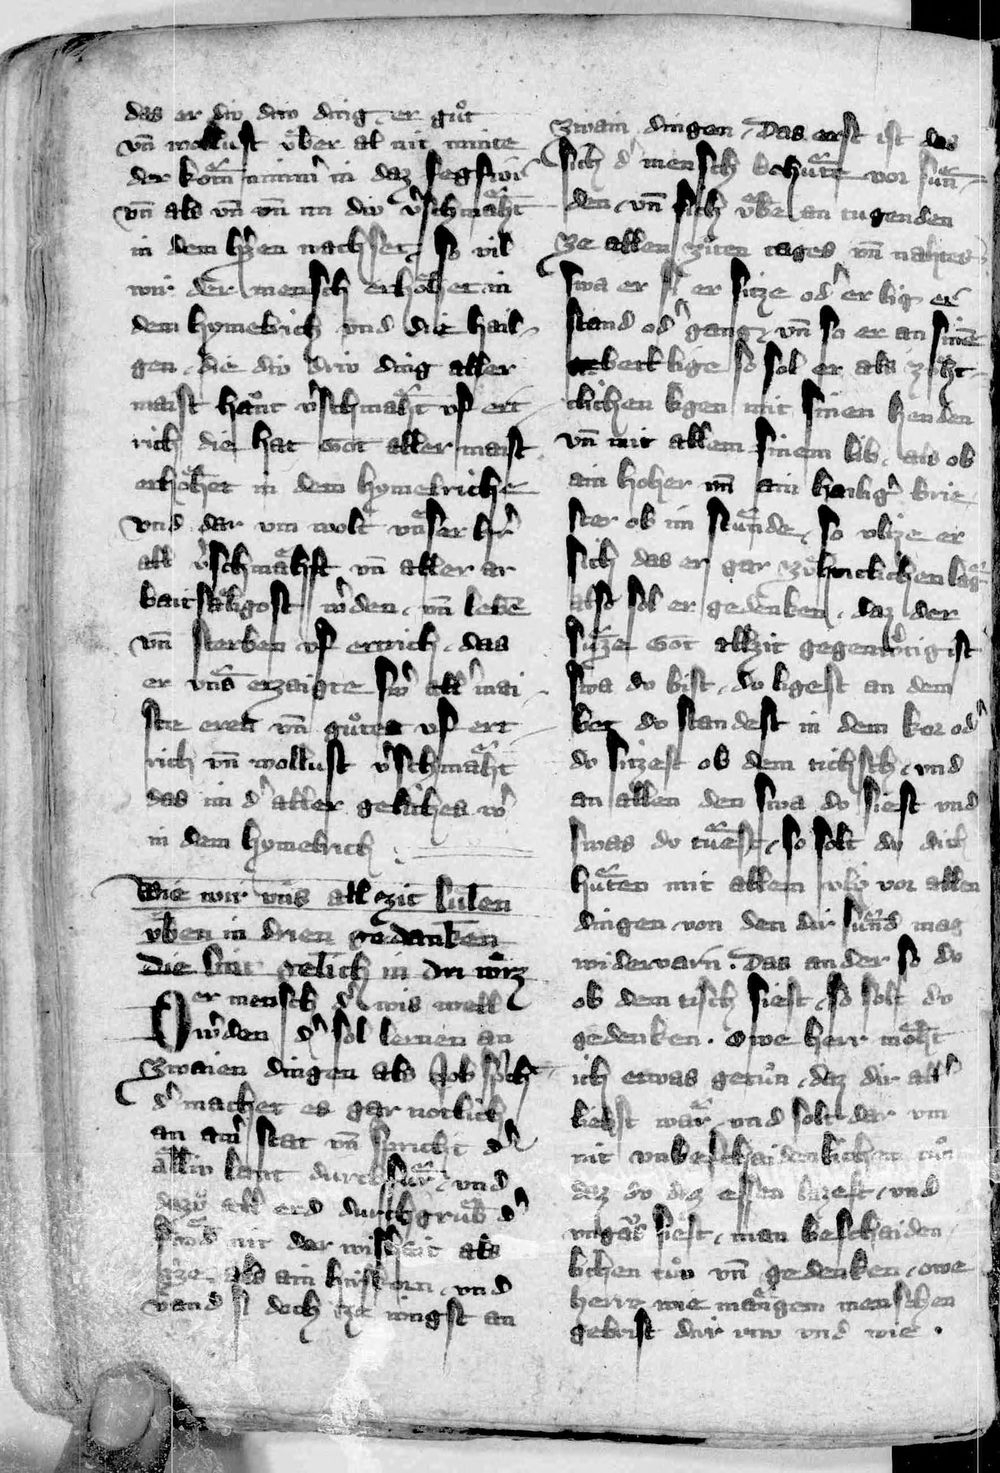 das er div driv ding er guͦt
vn̄ wollust v̍ber al nit minte
der kom nimm̄ in daz fegfivr
vn̄ als vn̄ vn̄ div v̍schmaͤht
in dem hʼzen nach set, so vil
wir der mensch erhoͤhet in
dem hymelrich vnd die hail-
gen, die div driv ding aller
maist hant v̍schmaͤht vf ert-
rich die hat Got aller maist
erhoͤhet in dem hymelriche
vnd dar vm wolt vnser hʼr
all v̍schmaͤhst vn̄ aller ar
baitsaͤligost wʼden, vn̄ lebē
vn̄ sterben vf ertrich, das
er vns erzaigte swʼ all mai-
ste eren vn̄ guͦtes vf ert
rich vn̄ wollust v̍schmaͤht
das im dʼ aller geliches wʼ
in dem hymelrich
Wie wir vns all zit suͤlen
v̍ben in drien gedanken
die sint gelich in dri wʼrz
Der mensch dʼ wis well
wʼden dʼ sol lernen an
zwaien dingen als Job spch
dʼ machet es gar notlich
an aim̄ stat vn̄ spricht dʼ
alliv lant durch fuͤr, vnd
dazuͦ all erd durchgruͤb dʼ
fvnd nit der wisheit als
als ain hirskorn, vnd
vand si doch ze iungst an
zwain dingen, Das erst ist das
sich dʼ mensch behuͤte vor suͤn-
den, vn̄ sich v̍be an tugenden
ze allen ziten tages vn̄ nahtes
swa er si er sitze odʼ er lig er
stand odʼ gang, vn̄ so er an sinē
bett lige so sol er als zuͤht-
clichen ligen mit sinen henden
vn̄ mit allem sinem lib, als ob
ain hoher vn̄ ain hailigʼ brie-
ster ob im stuͤnde, so vlize er
sich das er gar zuͤhteclichen lag
also sol er gedenken, daz der
suͤze Got allzit gegenwʼtig ist
swa dv bist, dv ligest an dem
bet dv standest in dem kor odʼ
dv sitzest ob dem tichsch, vnd
an allen den swa dv siest vnd
swas dv tuͤest, so solt dv dich
huͤten mit allem vliz vor allen
dingen von den dir suͤnd mag
widervarn. Das ander so dv
ob dem tisch siest, so solt dv
gedenken. Owe herr moͤht
ich etwas getuͦn, daz dir allʼ
liebst waͤr, vnd solt dar vm
nit vnbeschaidenlichen tuͦn
daz dv daz essen lazest, vnd
vngaͤs siest, man beschaiden
lichen tuͦn vn̄ gedenken, owe
herr wie maͤngem menschen
gebrist dur vnd wie.